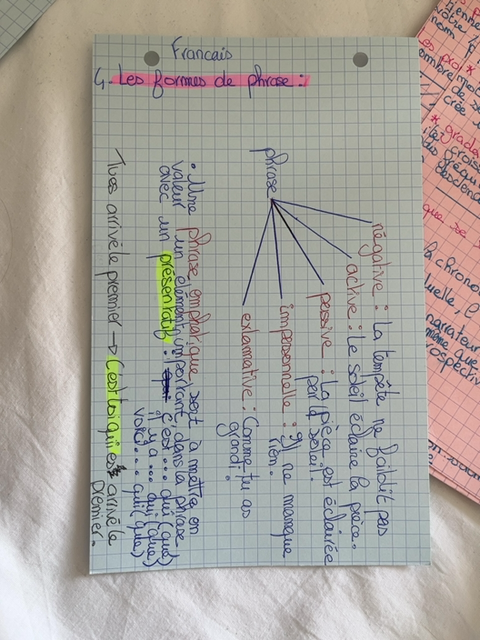 Français
4. Les formes de phrase :
phrase
négative : La tempête ne faiblit pas
active : Le soleil éclaire la pièce.
passive : La pièce est éclairée
par le soleil.
impersonnelle : Il ne manque
rien.
exlamative : Comme tu as
grandi !
• Une phrase emphatique sert à mettre en
valeur un élément important dans la phrase
avec un présentatif : c'est ... qui (que)
il y a ... qui (que)
voici ... qui (que)
Tu es arrivé le premier → C'est toi qui es arrivé le
premier.
nom
de
crée
* grada
que se
la chrono
narrateur
même que